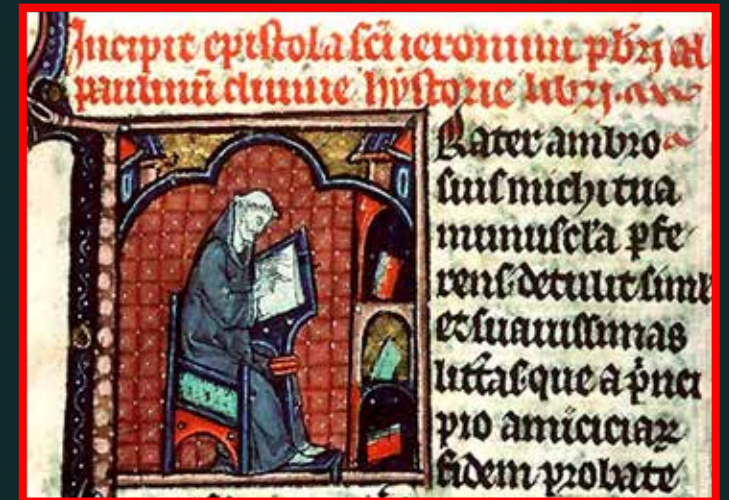 Incipit epistola sci ieronimi pbri ad
paulinū diuine hystorie libri.
Rater ambro
suis michi tua
munuscla pfe
rens detulit siml
et suauissimas
littas que a pnci
pio amiciciaꝝ
fidem probate